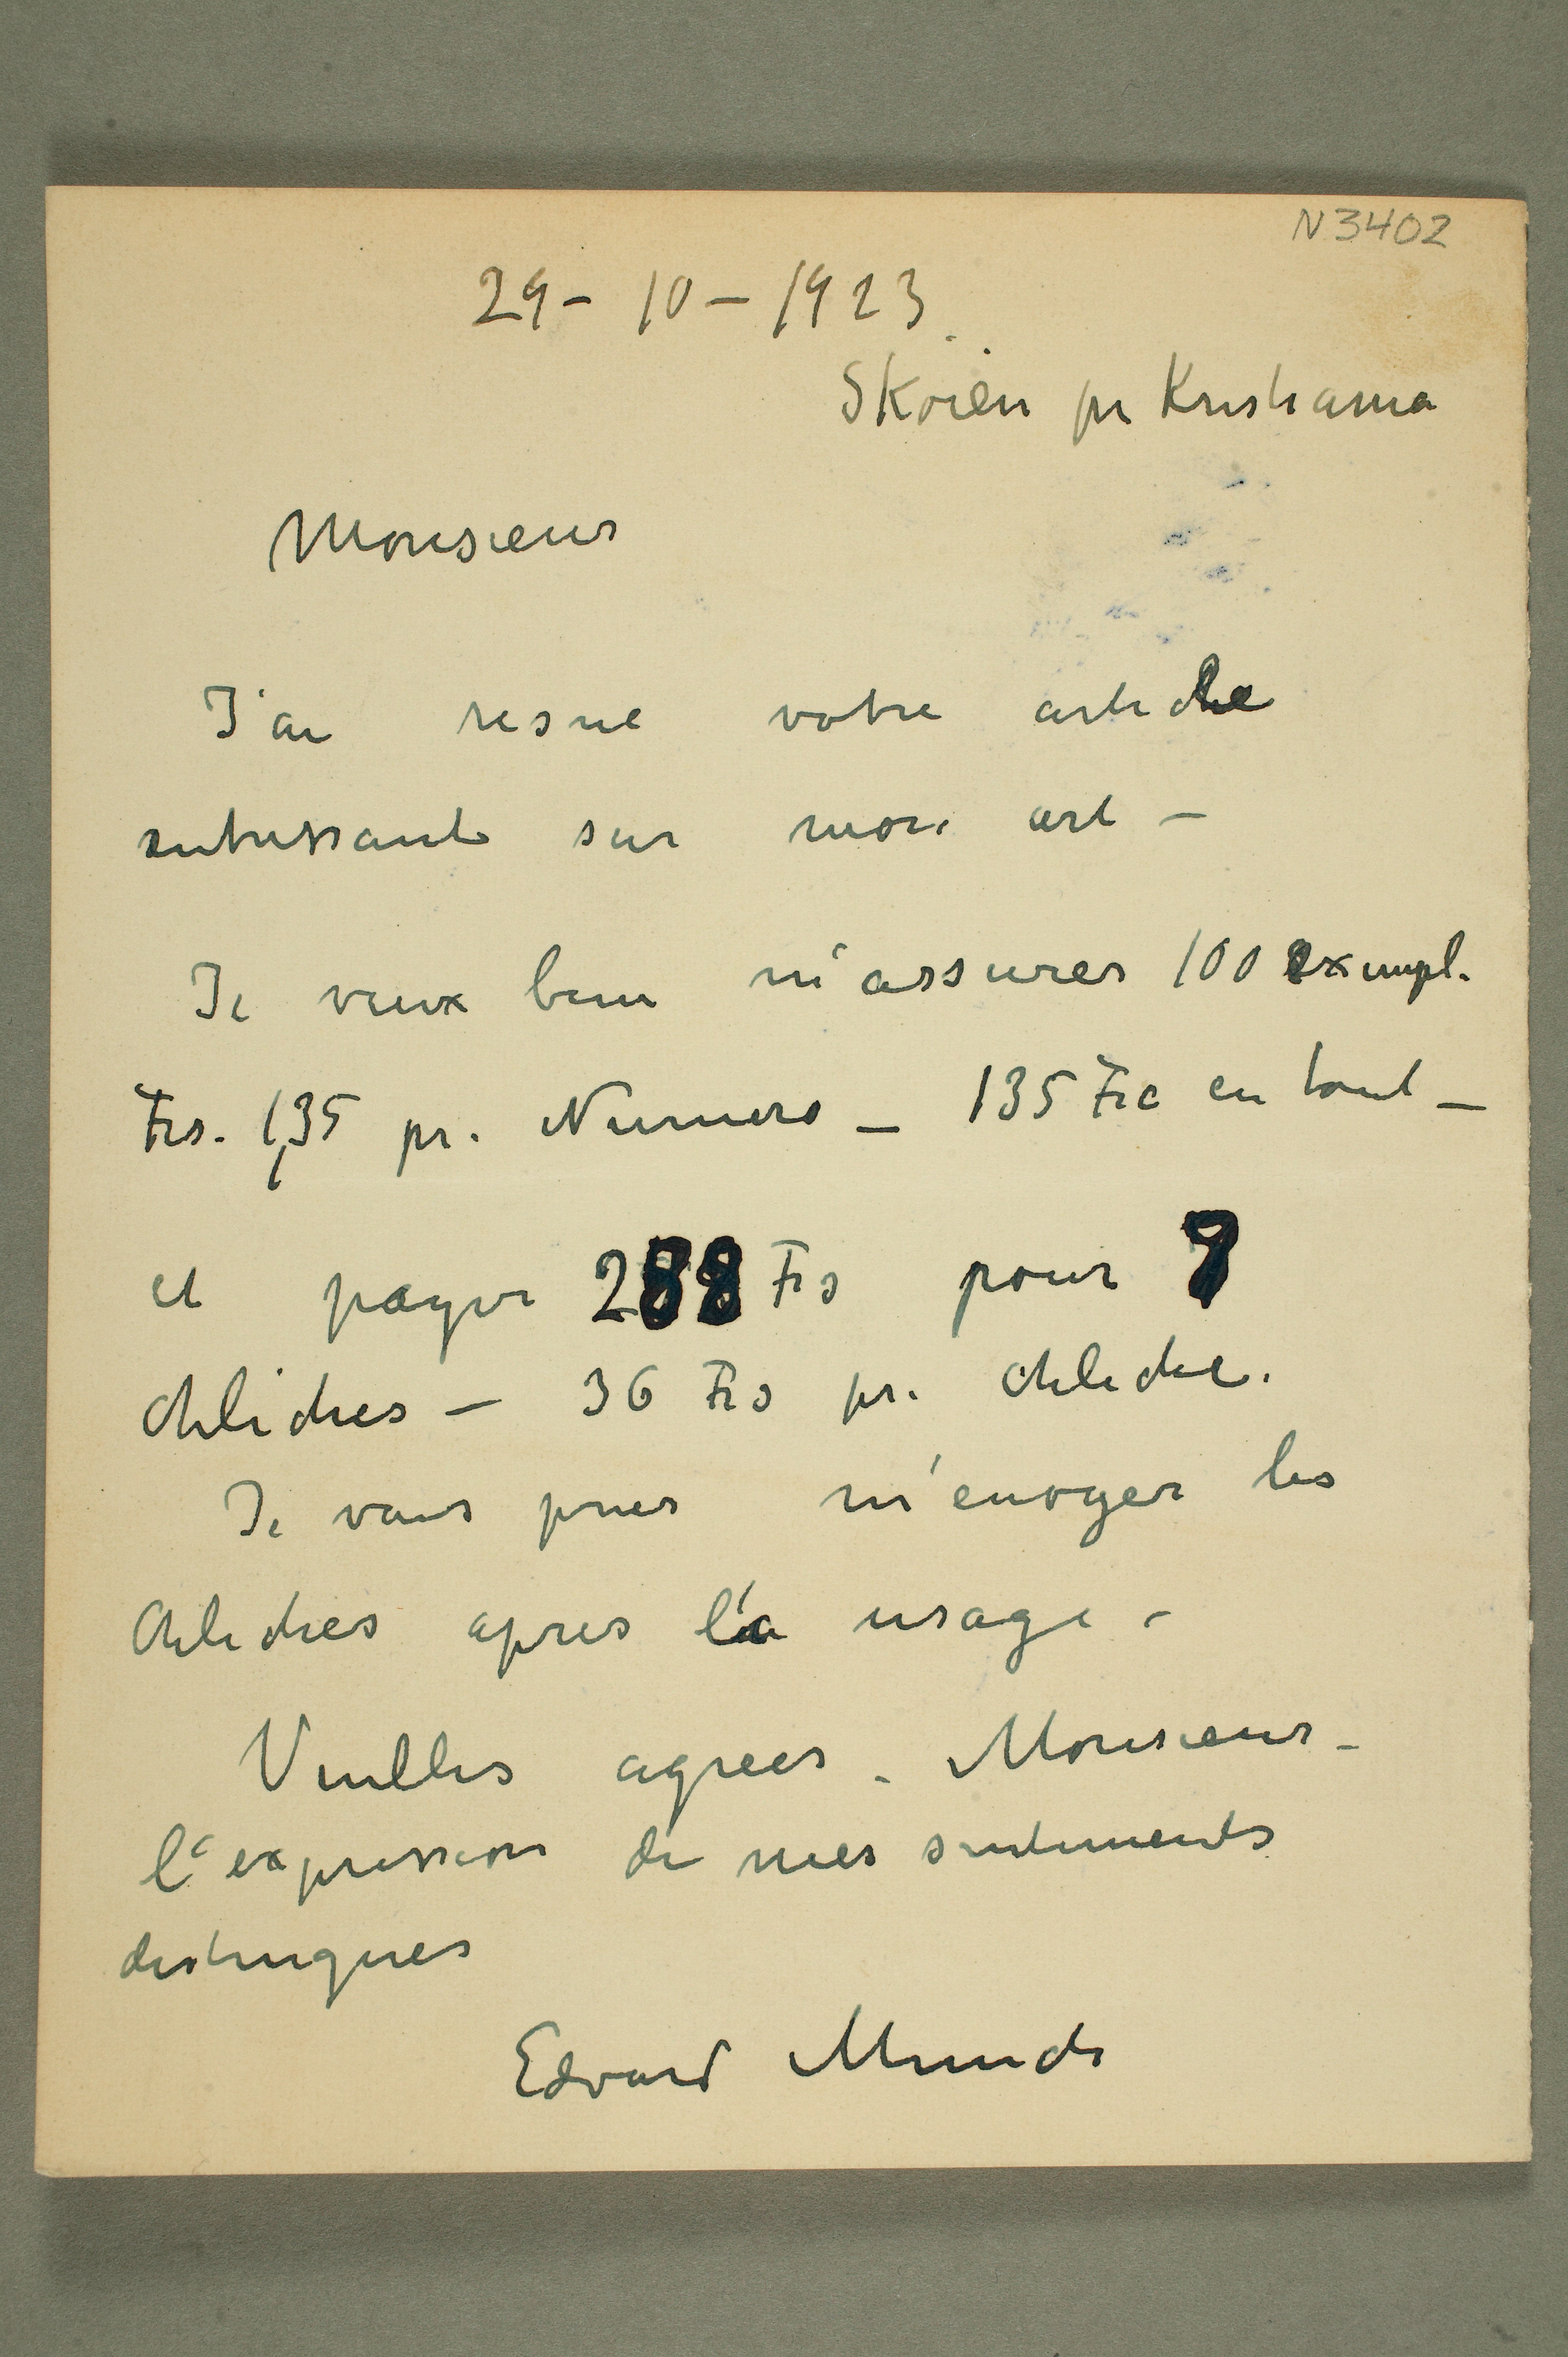 N 3402
29 - 10 - 1923.
Skøien pr Kristiania
Monsieur
J'ai resue votre artichle
intressante sur mon art –
Je veux bien m'assurer 100 exempl.
Frs. 1,35 pr. Numero – 135 Frc en tout –
et payer 288 Frs pour 8
chliches – 36 Frs pr. chliche.
Je vous prier m'enoyer les
Chliches apres l'a usage –
Veulles agreer – Monsieur –
l'expression de mes sentiments
distingues
Edvard Munch